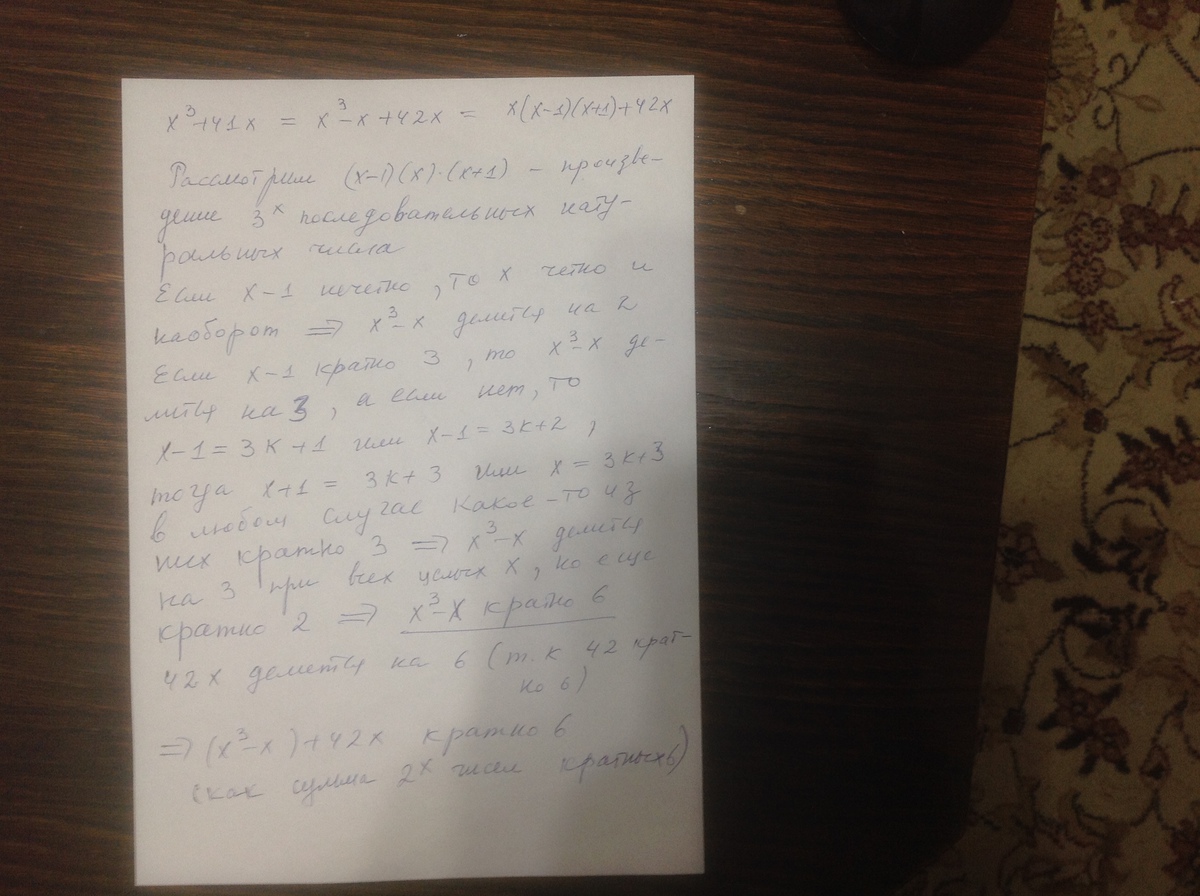 x³+41x = x³-x+42x = x(x-1)(x+1)+42x
Рассмотрим (x-1)(x)·(x+1) - произве-
дение 3ˣ последовательных нату-
ральных числа
Если x-1 нечетно, то x четно и
наоборот ⇒ x³-x делится на 2
Если x-1 кратно 3, то x³-x де-
лится на 3, а если нет, то
x-1=3k+1 или x-1=3k+2,
тогда x+1 = 3k+3 или x = 3k+3
в любом случае какое-то из
них кратно 3 ⇒ x³-x делится
на 3 при всех целых x, но еще
кратно 2 ⇒ x³-x кратно 6
42x делится на 6 (т.к 42 крат-
но 6)
⇒ (x³-x)+42x кратно 6
(как сумма 2ˣ чисел кратных 6)